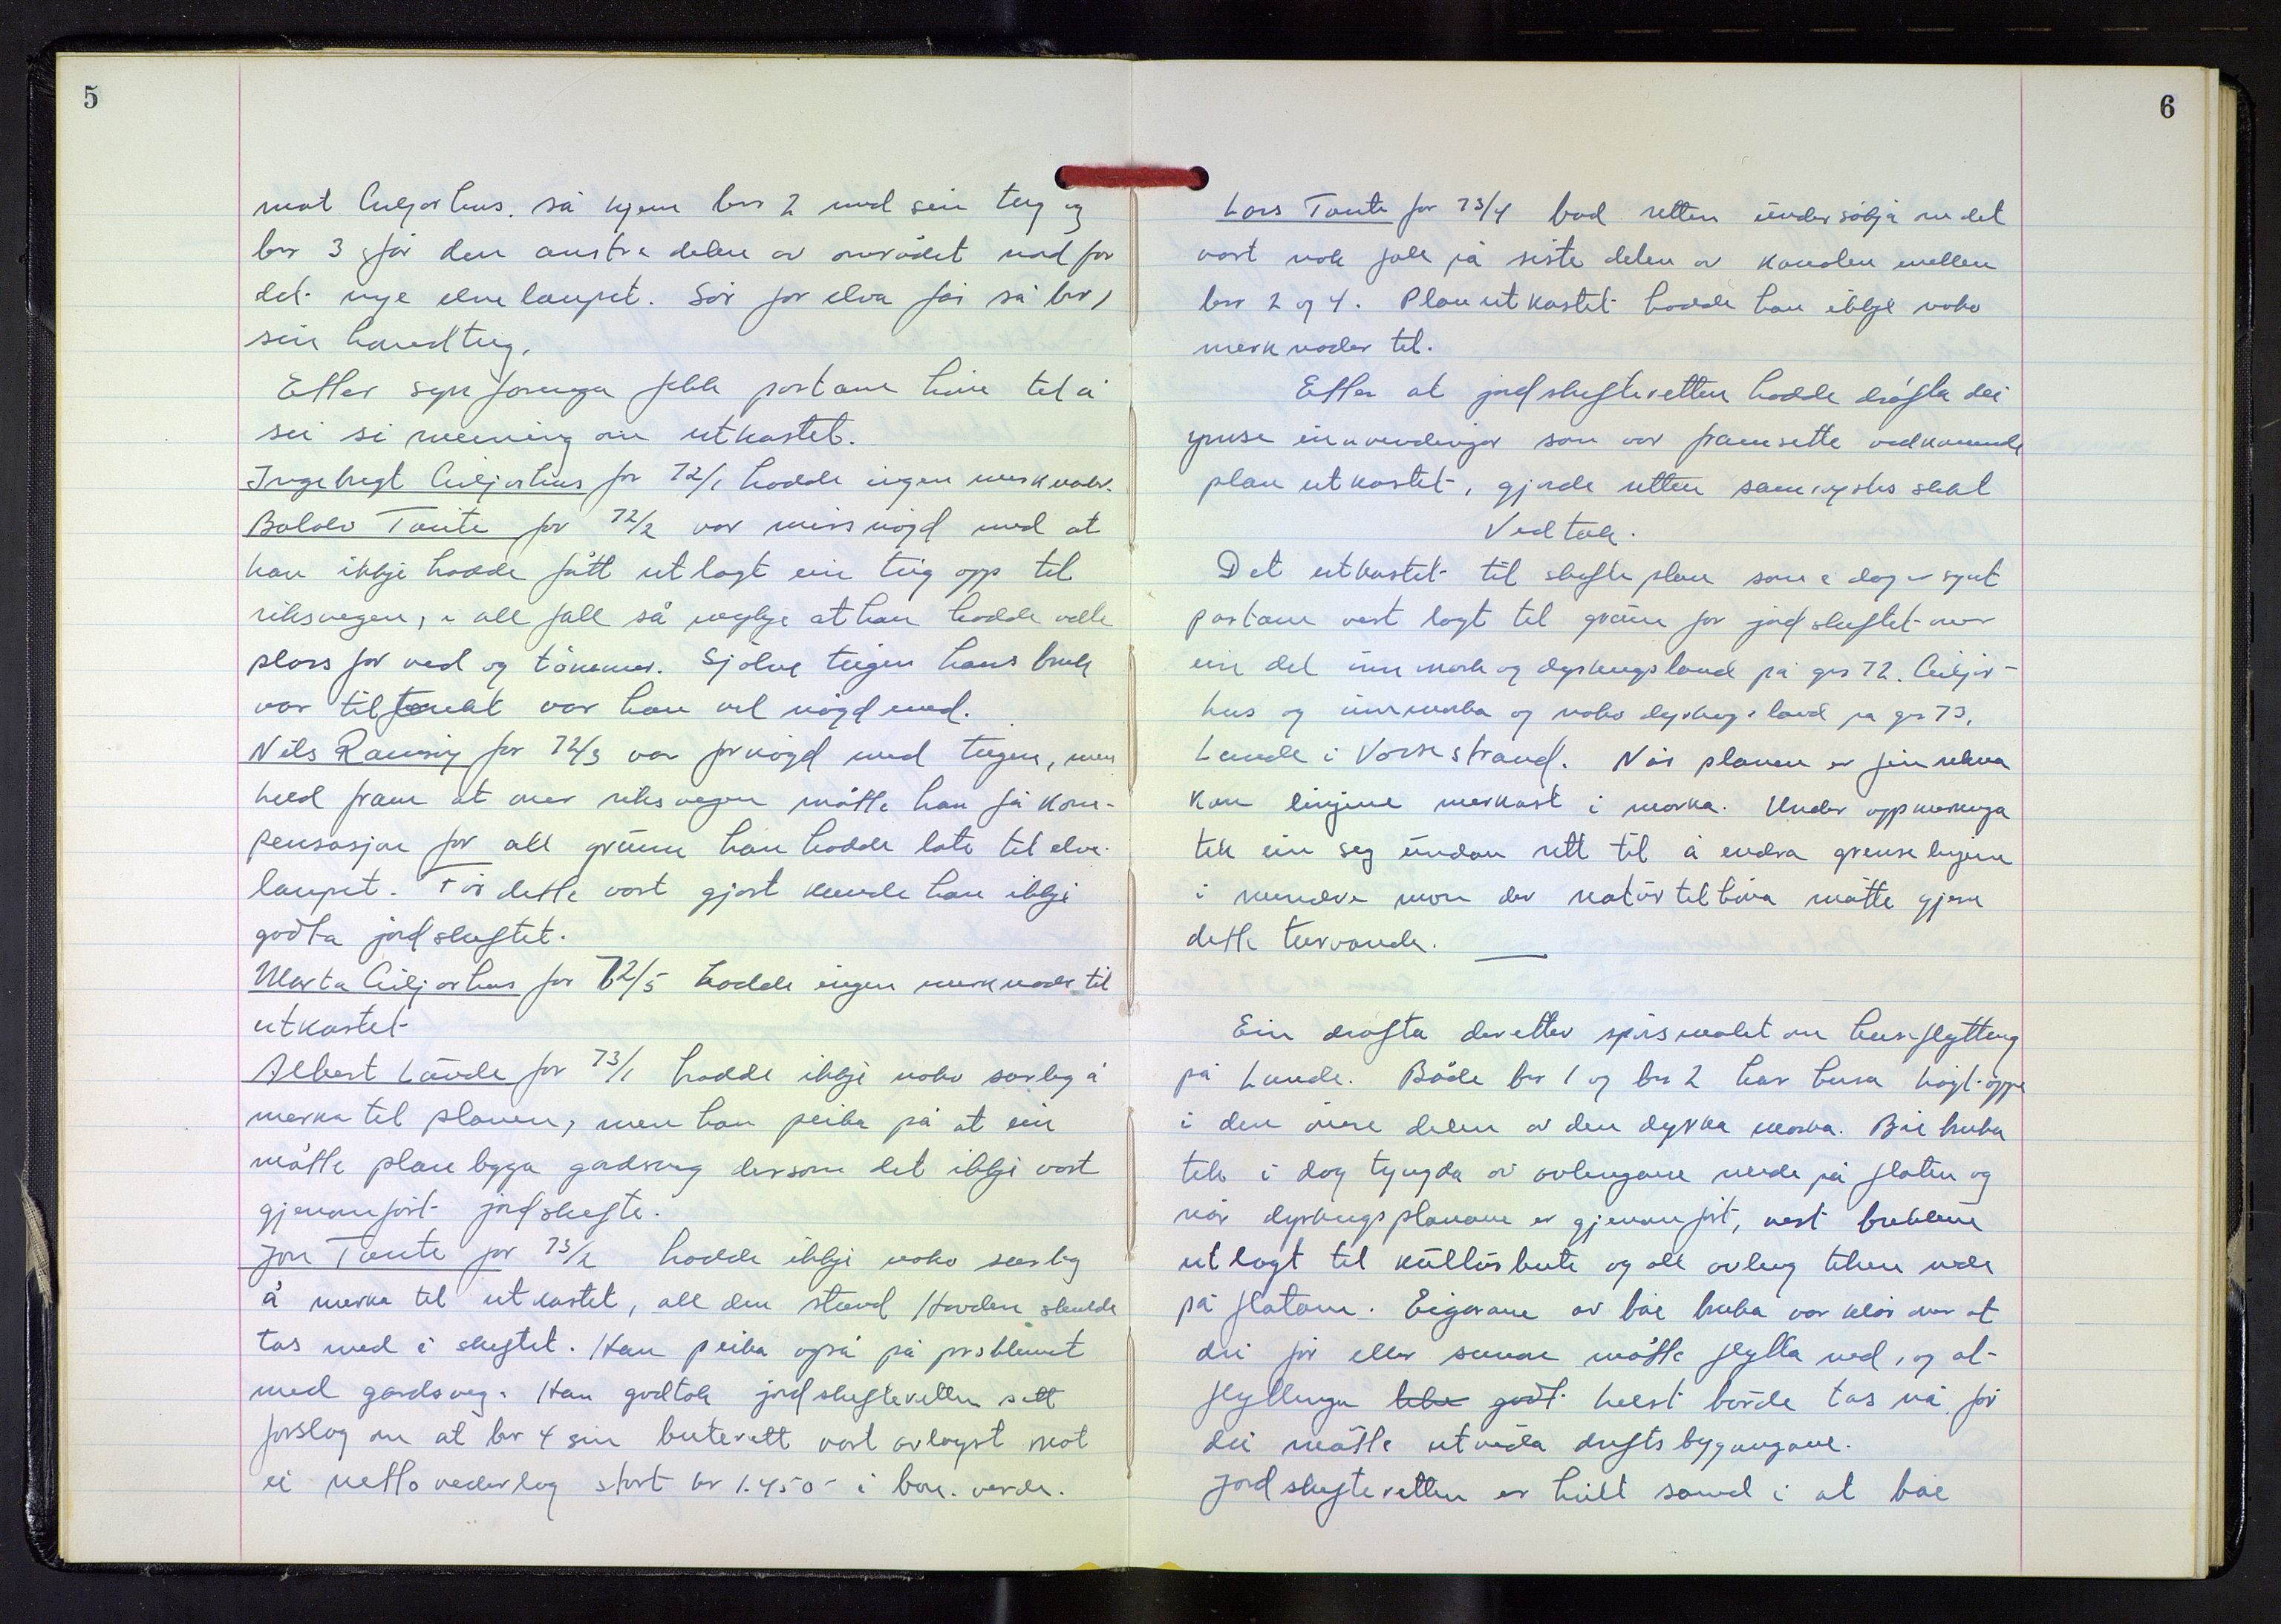 5
mot Ciljarhus. så kjem bnr 2 med sin teig og
bnr 3 får den austre delen av området nord for
det nye elvelaupet. Sør for elva får så bnr 1
sin hovedteig.
Etter synfaringa fekk partane høve til å
sei si meining om utkastet.
Ingebregt Ciljarhus for 72/1 hadde ingen merknader.
Bolder Tonite for 72/2 var missnøgd med at
han ikkje hadde fått utlagt ein teig opp til
riksvegen, i all fall så mykje at han hadde vellt
plass for ved og tømmer. Sjølve teigen hans bruk
var tiltenkt var han vel nøgd med.
Nils Rausnig for 72/3 var fornøgd med teigen, men
held fram at over riksvegen måtte han få kom-
pensasjon for all grunn han hadde late til elve-
laupet. Før dette vart gjort kunde han ikkje
godta jordskiftet.
Marta Ciljarhus for 72/5 hadde ingen merknader til
utkastet
Albert Lunde for 73/1 hadde ikkje noko særleg å
merka til planen, men han peika på at ein
måtte planlegga gardsveg dersom det ikkje vart
gjenomført jordskifte.
Jon Tonite for 73/2 hadde ikkje noko særleg
å merka til utkastet, all den stund Havden skulde
tas med i skiftet. Han peika også på problemet
med gardsveg. Han godtok jordskifteretten sitt
forslag om at bnr 4 sin beiterett vart avløyst mot
ei netto vederlag stort kr 1.450- i bon. verde.
6
Lars Tonite for 73/4 bad retten undersøkja um det
vart nok fall på siste delen av kanalen mellom
bnr 2 og 4. Planutkastet hadde han ikkje noko
merknader til.
Etter at jordskifteretten hadde drøfta dei
ymse innvendingar som var framsette vedkomande
planutkastet, gjorde retten samrøystes slikt
Vedtak.
Det utkastet til skifteplan som i dag er synt
partane vert lagt til grunn for jordskiftet over
ein del innmark og dyrkingsland på gnr 72. Ciljar-
hus og innmarka og noko dyrkingsland på gnr 73,
Lunde i Vormestrand. Når planen er finrekna
kan linjene merkast i marka. Under oppmerkinga
tek ein seg undan rett til å endra grenselinjene
i mindre mon der naturtilhøva måtte gjera
dette turvande.
Ein drøfta deretter spørsmålet om husflytting
på Lunde. Både bnr 1 og bnr 2 har husa høgt oppe
i den øvre delen av den dyrka marka. Bæ bruka
tek i dag tyngda av avlingane nede på flaten og
når dyrkingsplanane er gjenomført, vert brekkene
utlagt til kulturbeite og all avling teken nede
på flatane. Eigarane av bæ bruka var klår over at
dei før eller sennare måtte flytta ned, og at
flyttinga helst burde tas nå før
dei måtte utvida driftsbygningane.
Jordskifteretten er heilt samd i at bæ